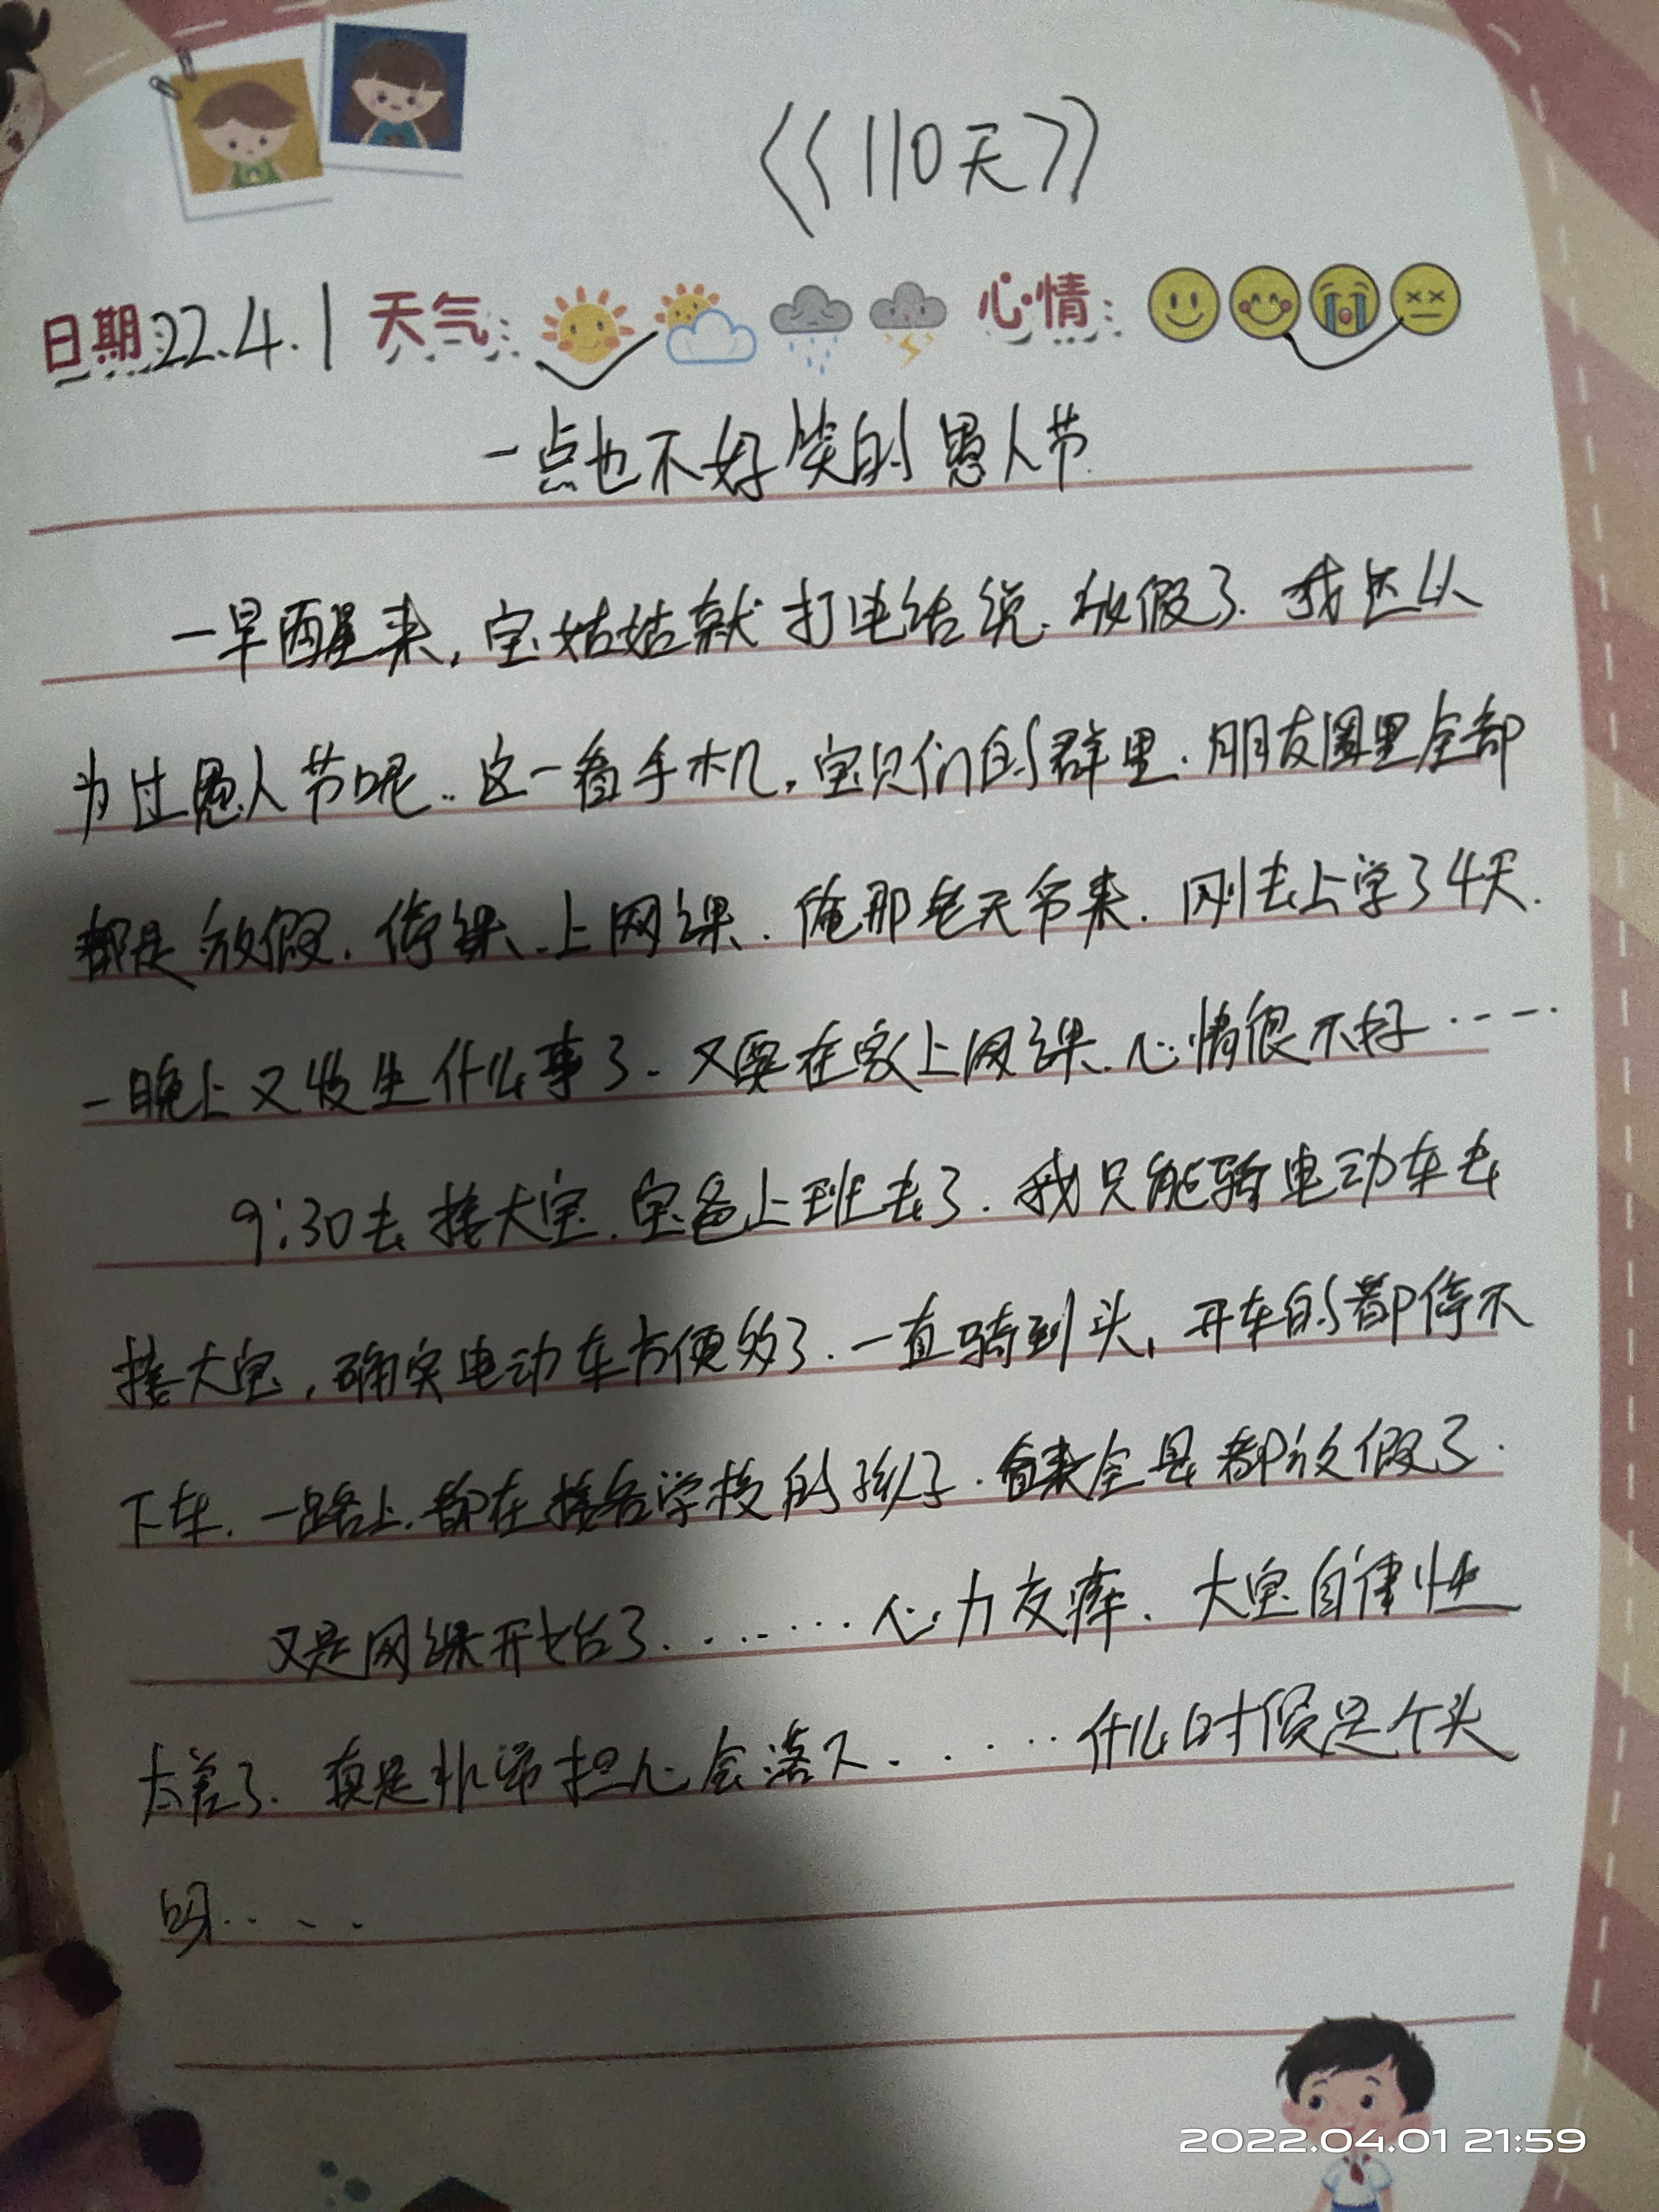 《110天》
日期:22.4.1 天气: 心情:
一点也不好笑的愚人节
一早醒来,宝姑姑就打电话说.放假了.我还以
为过愚人节呢..这一看手机,宝贝们的群里.朋友圈里全部
都是放假.停课.上网课.俺那老天爷来.刚去上学了4天.
一晚上又发生什么事了.又要在家上网课.心情很不好……
9:30去接大宝.宝爸上班去了.我只能骑电动车去
接大宝,确实电动车方便多了.一直骑到头,开车的都停不
下车.一路上.都在接各学校的孩子.看来全县都放假了.
又是网课开始了........心力交瘁.大宝自律性
太差了.真是非常担心会落下......什么时候是个头
呀....
2022.04.01 21:59